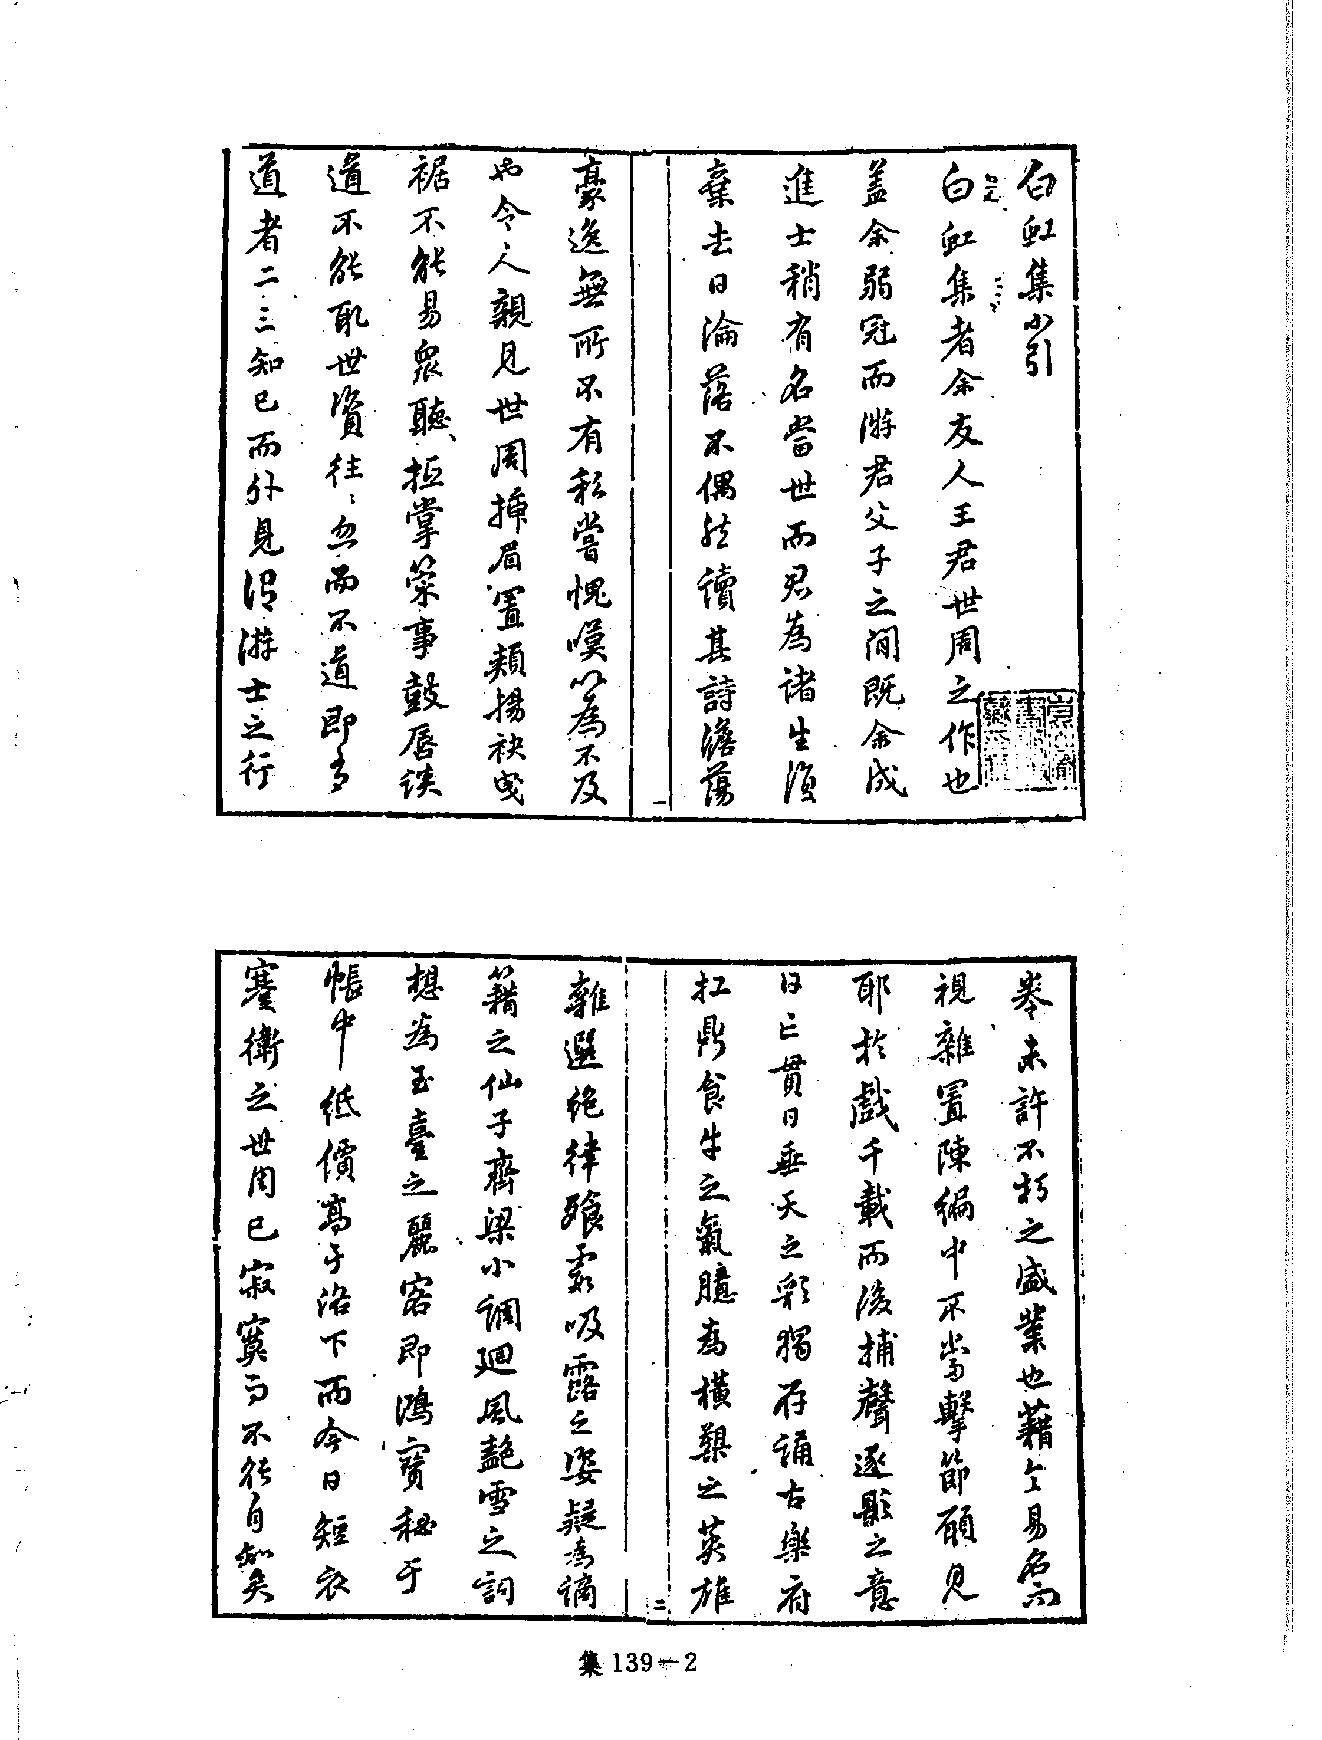 白虹集小引
白虹集者余友人王君世周之作也
蓋余弱冠而游君父子之間既余成
進士稍有名當世而君為諸生須
棄去日淪落不偶然讀其詩澹蕩
豪逸無所不有私嘗愧嘆以為不及
也令人親見世周掀眉置頰揚袂曳
裾不能易眾聽抵掌策事鼓唇談
道不能取世資往往忽而不道即有
道者二三知己而外見謂游士之行
卷未許不朽之盛業也藉令易名而
視雜置陳編中不當擊節願見
耶於戲千載而後捕聲逐影之意
日亡貫日垂天之彩獨存誦古樂府
扛鼎食牛之氣臆為橫槊之英雄
雜選絕律飱霞吸露之姿疑為謫
籍之仙子齊梁小調廻風艷雪之詞
想為玉臺之麗客即鴻寶秘于
帳中紙價高于洛下而今日短衣
蹇衛之世周已寂寞而不能自知矣
一
二
集 139－2